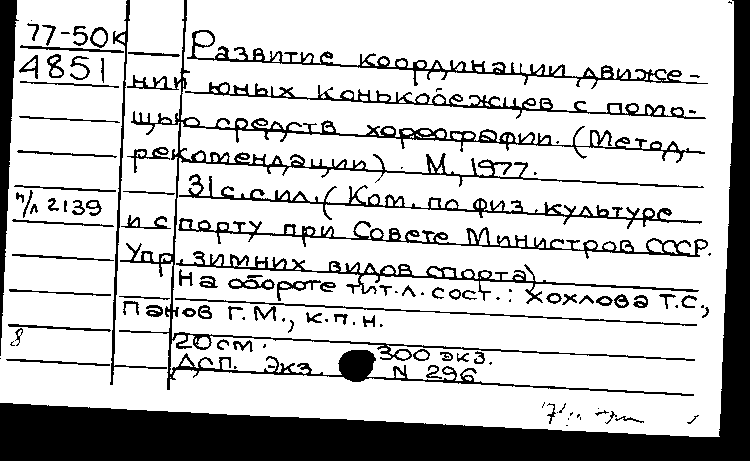 77-50к
4851
Развитие координации движе-
ний юных конькобежцев с помо-
щью средств хореографии. (Метод.
рекомендации). М., 1977.
31 с. с ил. (Ком. по физ. культуре
п/л 2139
и спорту при Совете Министров СССР.
Упр. зимних видов спорта).
На обороте тит. л. сост.: Хохлова Т.С.,
Панов Г.М., к.п.н.
8
20 см. 300 экз.
ДСП. Экз. N 296.